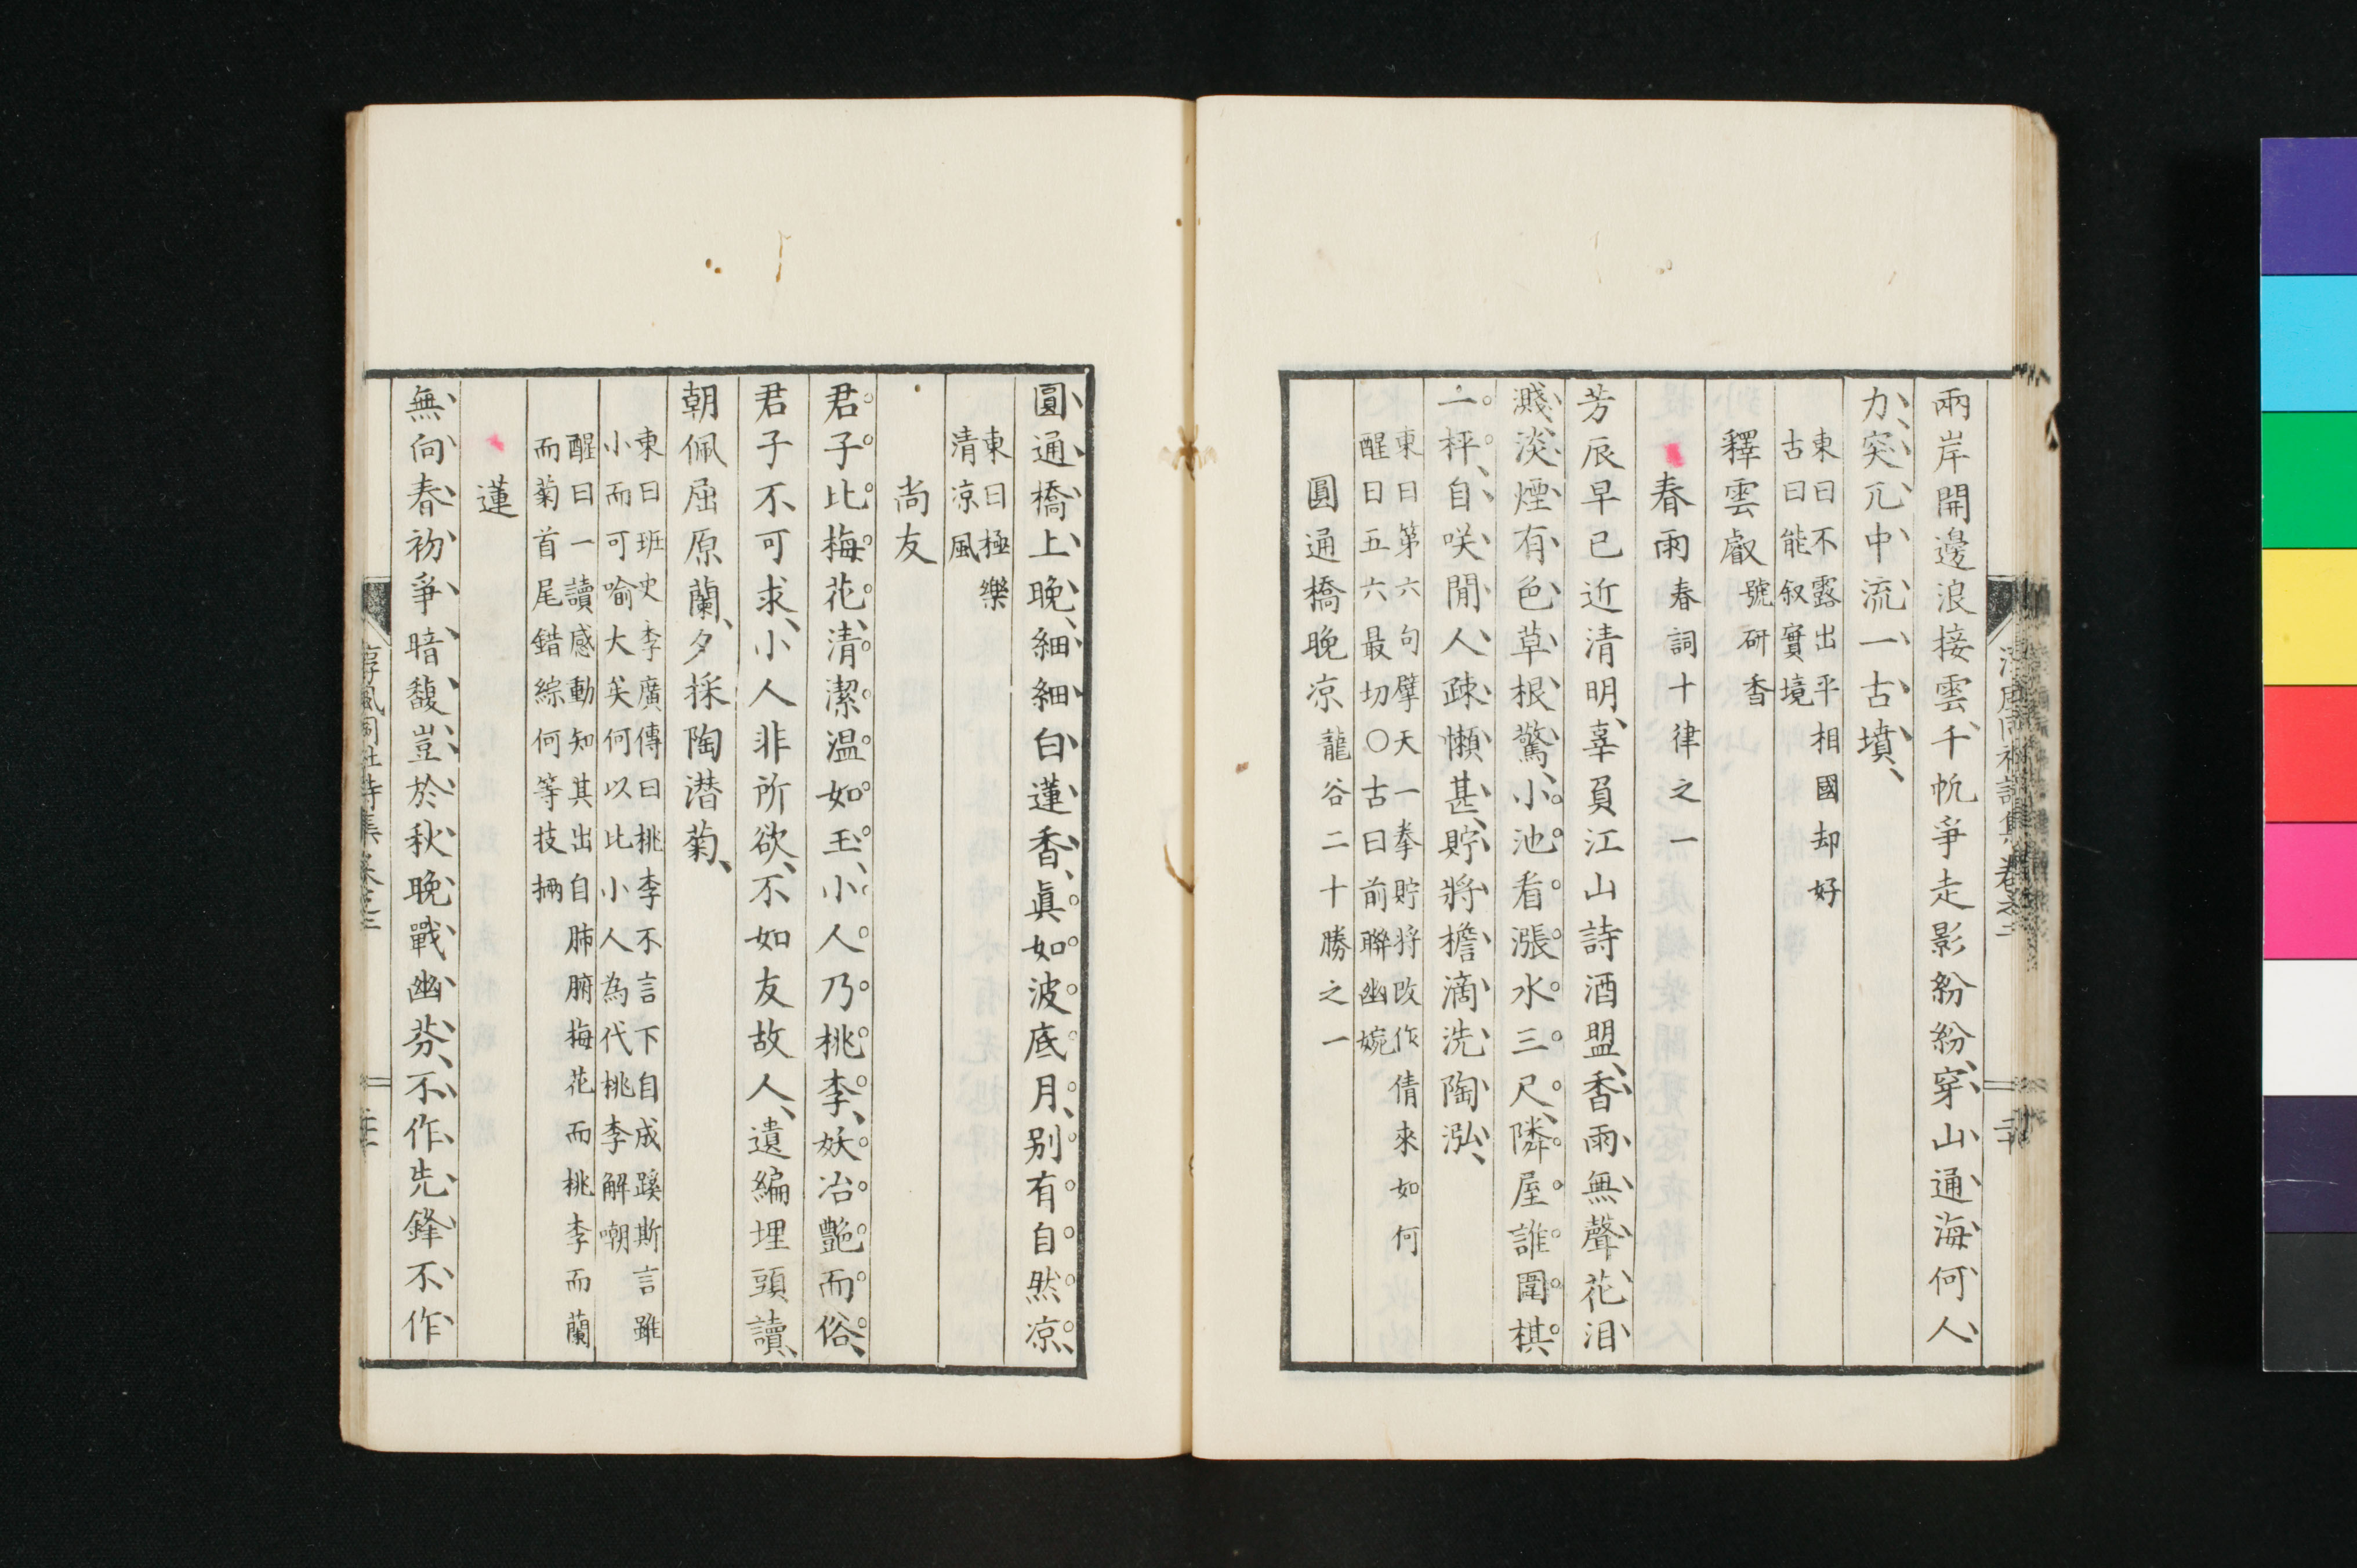 兩岸開邊浪接雲、千帆爭走影紛紛、穿山通海何人
力、突兀中流一古墳、
東曰不露出平相國却好
古曰能叙實境
釋雲叡號研香
春雨春詞十律之一
芳辰早已近清明、辜負江山詩酒盟、香雨無聲花泪
濺、淡煙有色草根驚、小池看漲水三尺、隣屋誰圍棋
一枰、自咲閒人疎懶甚、貯將擔滴洗陶泓、
東曰第六句擘天一拳貯將改作倩來如何
醒曰五六最切〇古曰前聯幽婉
圓通橋晚凉龍谷二十勝之一
圓通橋上晚、細細白蓮香、眞如波底月、別有自然凉、
東曰極樂
清凉風
尚友
君子比梅花、清潔温如玉、小人乃桃李、妖冶艷而俗、
君子不可求、小人非所欲、不如友故人、遺編埋頭讀、
朝佩屈原蘭、夕採陶潜菊、
東曰班史李廣傳曰桃李不言下自成蹊斯言雖
小而可喻大矣何以比小人為代桃李解嘲
醒曰一讀感動知其出自肺腑梅花而桃李而蘭
而菊首尾錯綜何等技掚
蓮
無向春初爭暗馥、豈於秋晚戰幽芬、不作先鋒不作
淳風詞社詩集卷之三